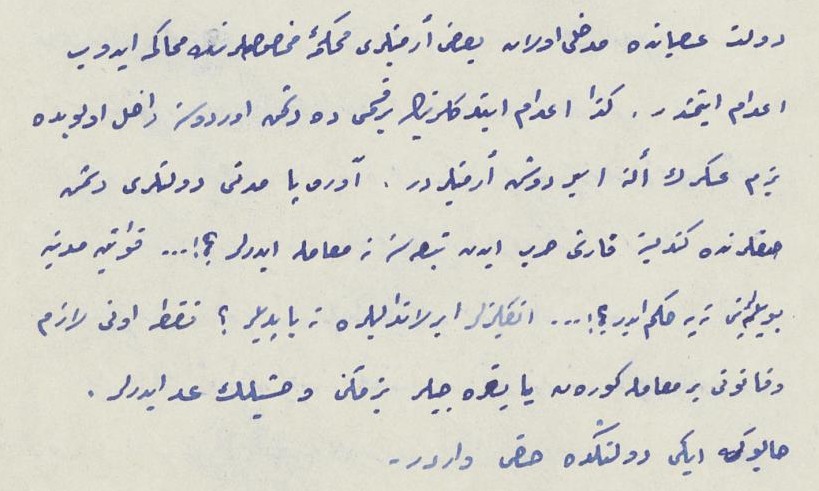 دولت عصیانده مدخلی اولان بعض أرمنیلری محکمهٔ مخصوصه‌لرنده محاکمه ایدوب
اعدام ایتمشدر. کذا اعدام ایتدکلرینڭ بر قسمی ده دشمن اوردوسنه داخل اولوبده
بزم عسکرڭ ألنه اسیر دوشن أرمنیلردر. آوروپا مدنی دولتلری دشمن
صفلرنده کندیسنه قارشی حرب ایدن تبعه‌سنه نه معامله ایدرلر؟!... قوانین مدنیه
بویله‌لرینی نه‌یه حکم ایدر؟!... انگلیزلر ایرلاندالیلره نه یاپدیلر؟ فقط اونی لازم
و قانونی بر معامله کورەن یایغره‌جیلر بزمکنی وحشیلك عد ایدرلر.
حالبوکه ایکی دولتڭده حقی واردر.-